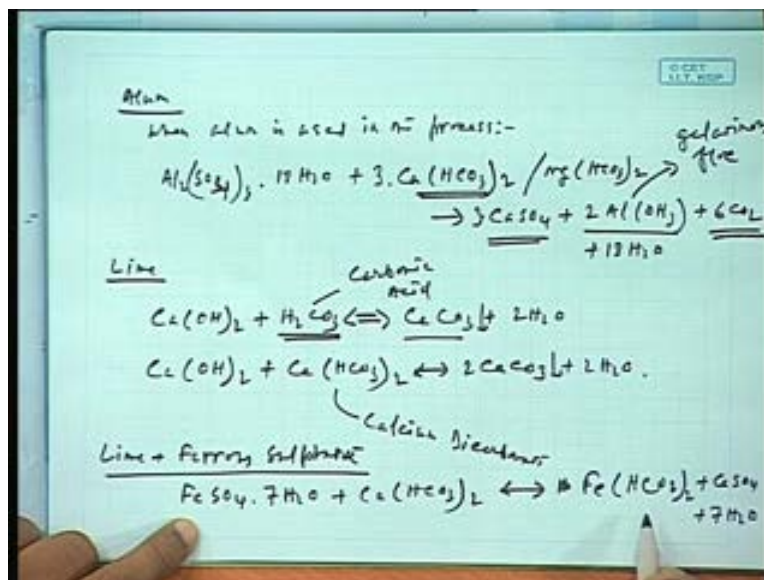 O CET
I.I.T. KGP
Alum
When alum is used in the process:-
Al₂(SO₄)₃ . 18 H₂O + 3. Ca(HCO₃)₂ / Mg(HCO₃)₂
gelatinous
floc
→ 3 CaSO₄ + 2 Al(OH)₃ + 6CO₂
+ 18 H₂O
Lime
Carbonic
Acid
Ca(OH)₂ + H₂CO₃ ⇔ CaCO₃↓ + 2H₂O
Ca(OH)₂ + Ca(HCO₃)₂ ↔ 2CaCO₃↓ + 2H₂O.
Calcium
Lime + Ferrous Sulphate
FeSO₄. 7H₂O + Ca(HCO₃)₂ ↔ Fe(HCO₃)₂ + CaSO₄
+ 7H₂O